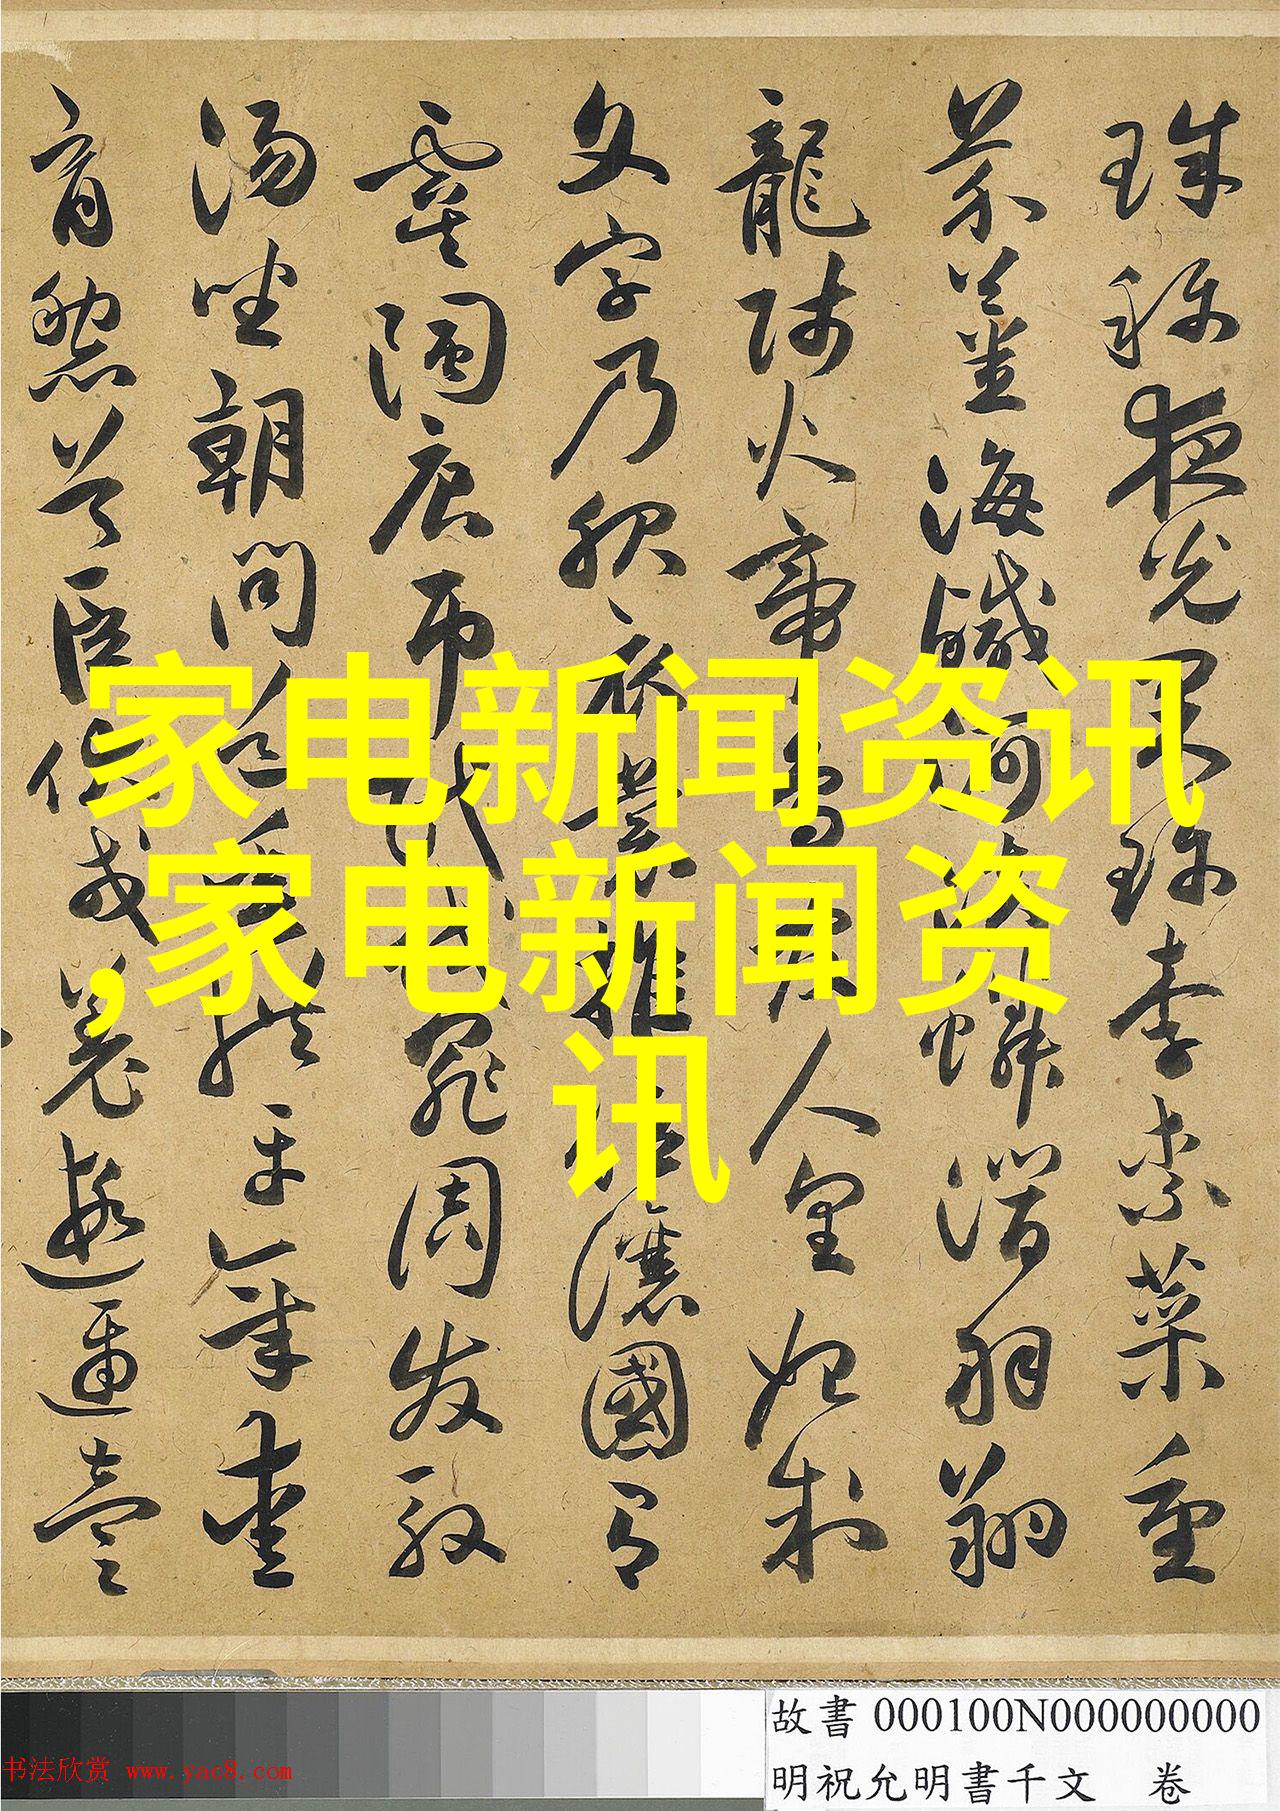 珠称夜光果珍李柰菜重
芥薑海鹹河淡鱗潛羽翔
龍師火帝鳥官人皇始制
文字乃服衣裳推位讓國有
虞陶唐弔民伐罪周发殷
湯坐朝問道垂拱平章愛
育黎首臣伏戎羌遐邇壹
家电新闻资讯
,家电新闻资
讯
故書 000100N000000000
明祝允明書千文 卷
书法欣赏 www.yac8.com